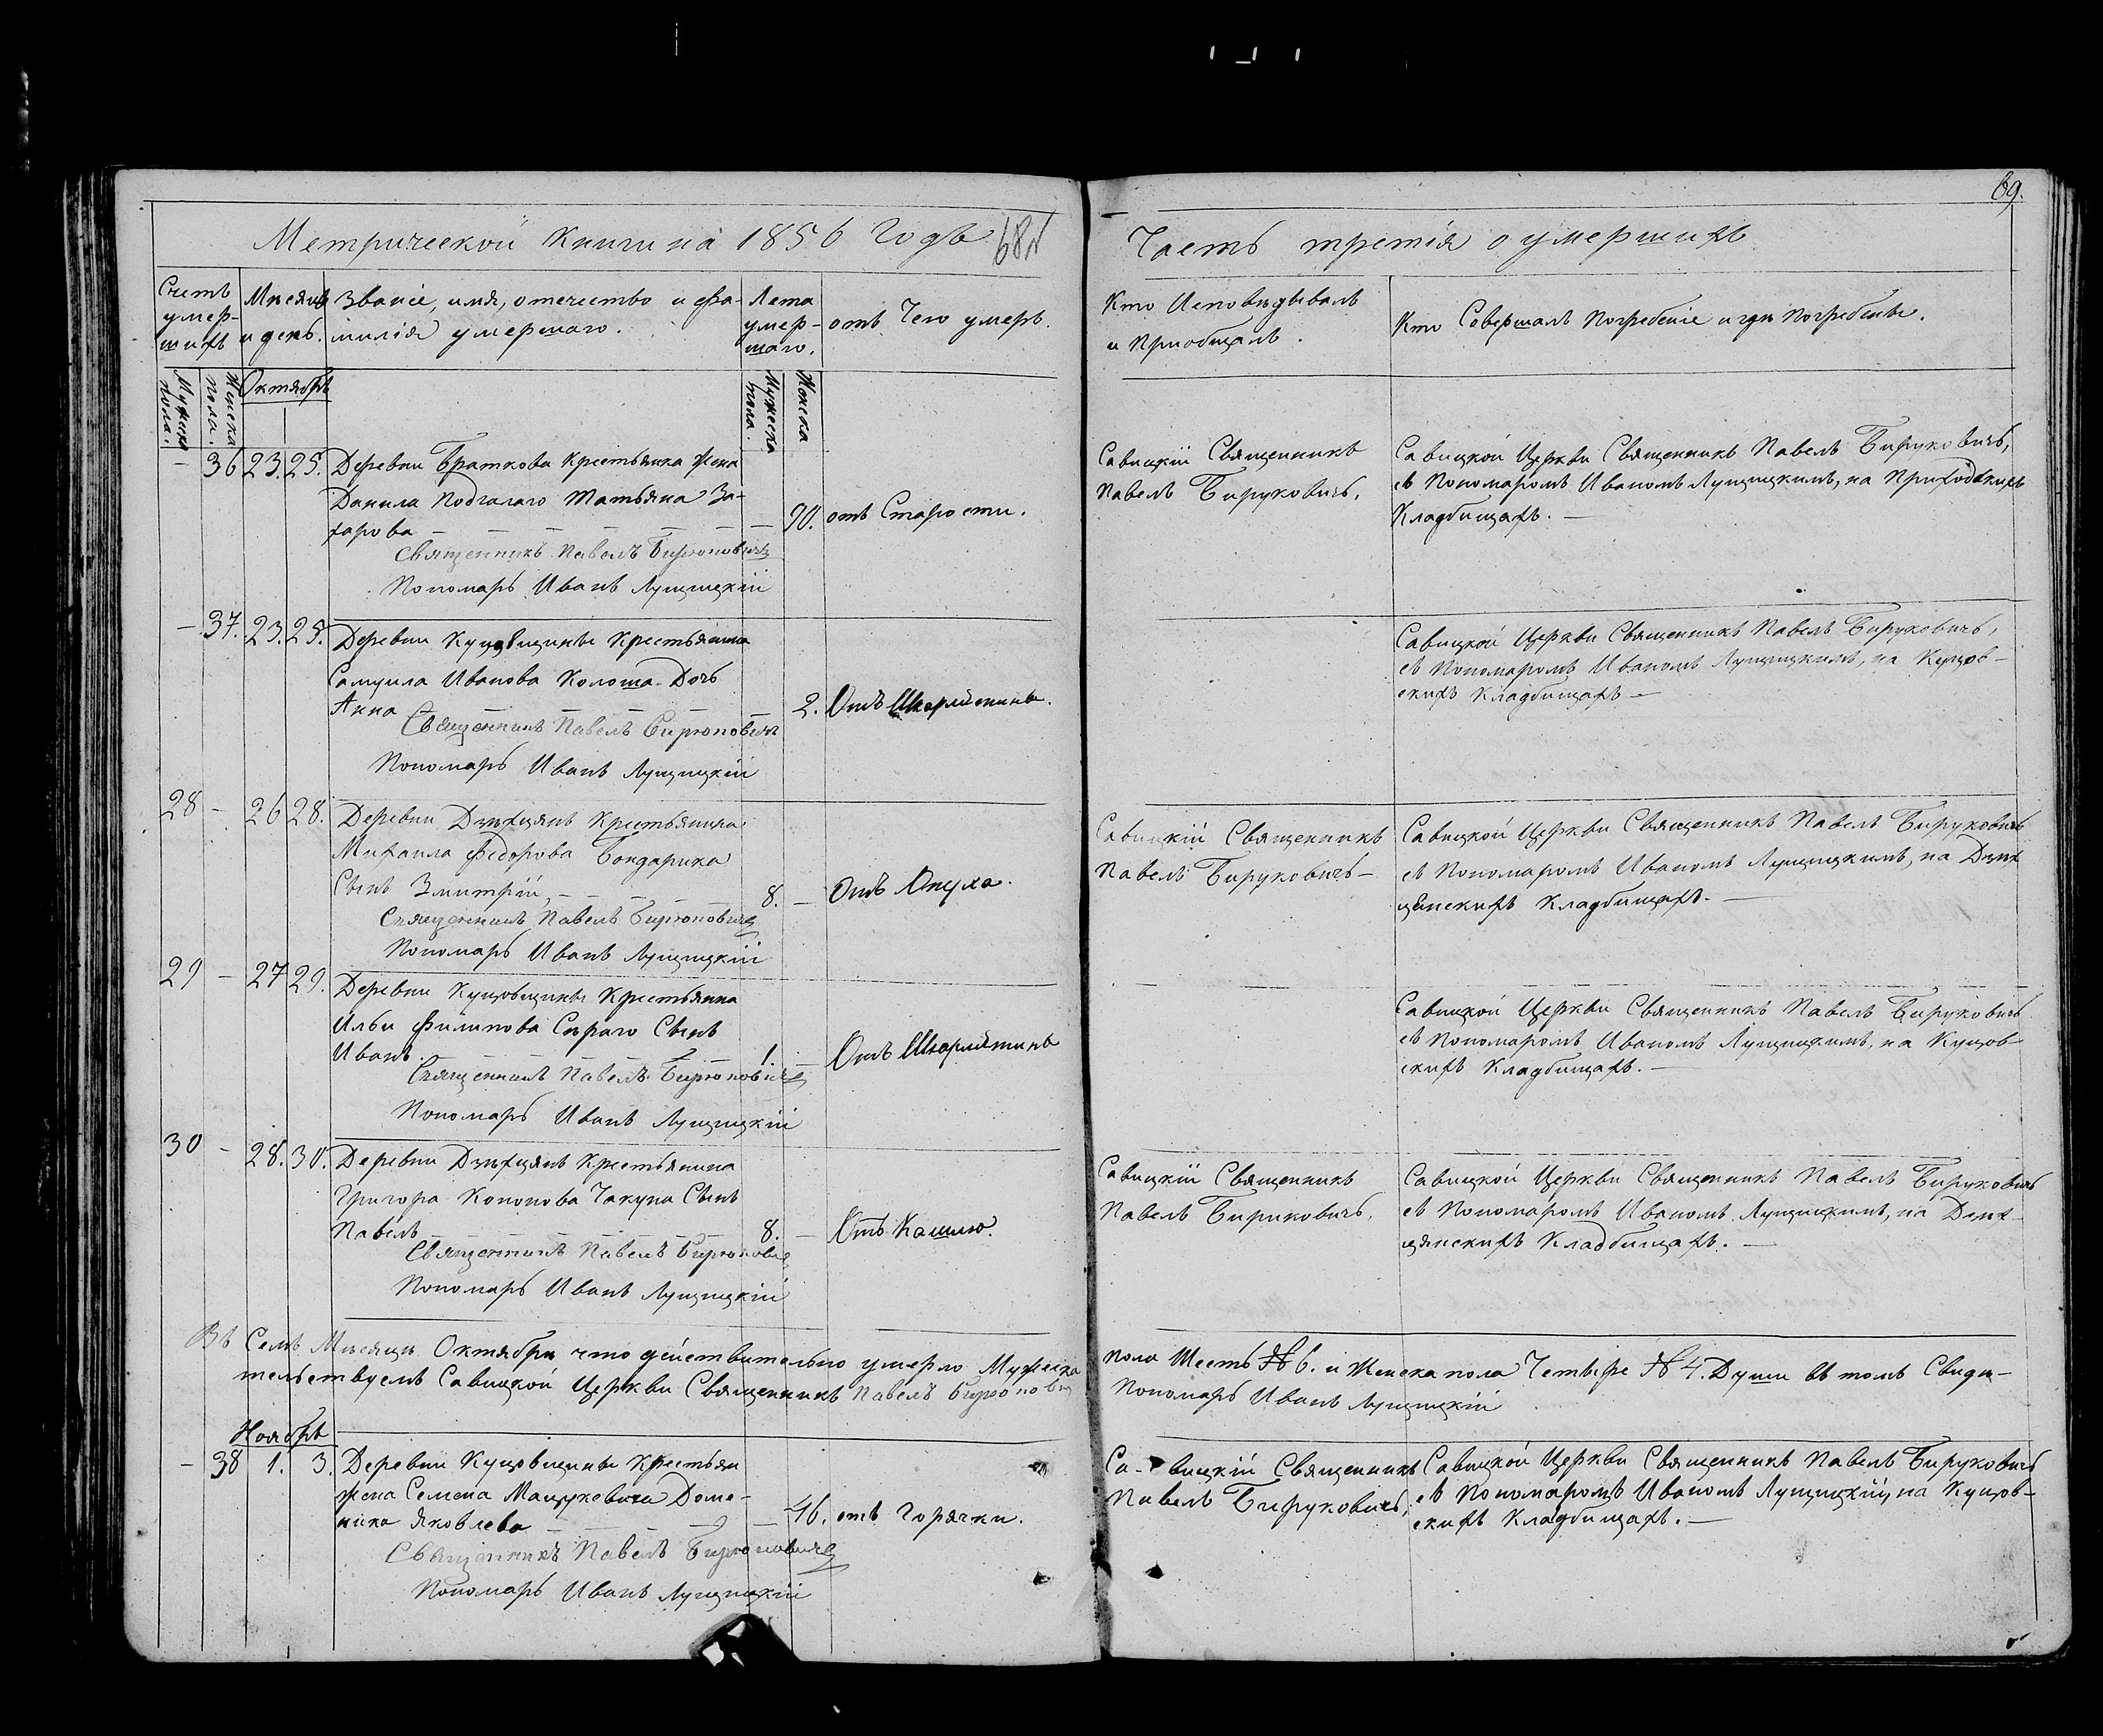 69.
Метрической Книги на 1856 Годъ
68
Часть третія о умершихъ
Счетъ умер-шихъ
Мѣсяцъ и день.
Званіе, имя, отечество и фа-
милія умершаго.
Лета умер-шаго.
отъ Чего умеръ.
Кто Исповѣдывалъ
и Пріобщалъ.
Кто Совершалъ Погребеніе и гдѣ Погребены.
Мужска пола.
Женска пола.
Октябрь
Мужеска пола.
Женска
– 36 23. 25. Деревни Браткова Крестьянка Жена
Данила Подгалаго Татьяна За-
харова — 90. отъ Старости.
Священникъ Павелъ Бируковичъ
Пономарь Иванъ Лущицкій
Савицкій Священникъ
Павелъ Бируковичъ.
Савицкой Церкви Священникъ Павелъ Бируковичъ,
съ Пономаромъ Иваномъ Лущицкимъ, на Приходскихъ
Кладбищахъ. —
– 37. 23. 25. Деревни Куцовщины Крестьянина
Самуила Иванова Колоша Дочь
Анна — 2. Отъ
Священникъ Павелъ Бируковичъ
Пономарь Иванъ Лущицкій
Савицкой Церкви Священникъ Павелъ Бируковичъ,
съ Пономаромъ Иваномъ Лущицкимъ, на Куцов-
скихъ Кладбищахъ —
28 – 26 28. Деревни Дзѣхцянъ Крестьянина
Михаила Федорова Бондарика
Сынъ Змитрій, — 8. – Отъ Опуха.
Священникъ Павелъ Бируковичъ
Пономарь Иванъ Лущицкій
Савицкій Священникъ
Павелъ Бируковичъ –
Савицкой Церкви Священникъ Павелъ Бируковичъ
съ Пономаромъ Иваномъ Лущицкимъ, на Дзѣх
цянскихъ Кладбищахъ. —
29 – 27 29. Деревни Куцовщины Крестьянина
Ильи Филипова Сѣраго Сынъ
Иванъ. — 1. – Отъ
Священникъ Павелъ Бируковичъ
Пономарь Иванъ Лущицкій
Савицкой Церкви Священникъ Павелъ Бируковичъ
съ Пономаромъ Иваномъ Лущицкимъ, на Куцов-
скихъ Кладбищахъ. —
30 – 28. 30. Деревни Дзѣхцянъ Крестьянина
Григора Кононова Чакуна Сынъ
Павелъ — 8. – Отъ Кашлю.
Священникъ Павелъ Бируковичъ
Пономарь Иванъ Лущицкій
Савицкій Священникъ
Павелъ Бириковичъ,
Савицкой Церкви Священникъ Павелъ Бируковичъ
съ Пономаромъ Иваномъ Лущицкимъ, на Дзѣх-
цянскихъ Кладбищахъ. —
Въ Семъ Мѣсяцѣ Октябрѣ что действительно умерло Мужеска
пола Шесть № 6. и Женска пола Четыре № 4. Души въ томъ Свидѣ-
тельствуемъ Савицкой Церкви Священникъ Павелъ Бируковичъ
Пономарь Иванъ Лущицкій
Ноябрь
– 38 1. 3. Деревни Куцовщины Крестьян
жена Семена Мацукевича Доми-
ника Яковлева — 46. отъ Горячки.
Священникъ Павелъ Бируковичъ
Пономарь Иванъ Лущицкій
Са- вицкій Священникъ
Павелъ Бируковичъ,
Савицкой Церкви Священникъ Павелъ Бируковичъ
съ Пономаромъ Иваномъ Лущицкій, на Куцов-
скихъ Кладбищахъ. —